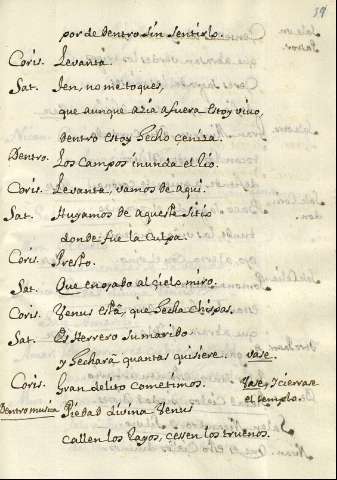 39
por de dentro sin sentirlo.
Coris. Levanta.
Sat. Ten, no me toques,
que aunque azia afuera estoy vivo,
dentro estoy hecho çeniza.
Dentro. Los campos inunda el rio.
Coris. Levanta, vamos de aqui.
Sat. Huyamos de aqueste sitio
donde fue la culpa.
Coris. Presto.
Sat. Que enojado al çielo miro.
Coris. Venus està, que hecha chispas.
Sat. Es Herrero su marido
y hecharà quantas quisiere. vase.
Coris. Gran delito cometimos. Vase, y cierrase
el templo.
Dentro musica Piedad divina Venus
callen los Rayos, çesen los truenos.